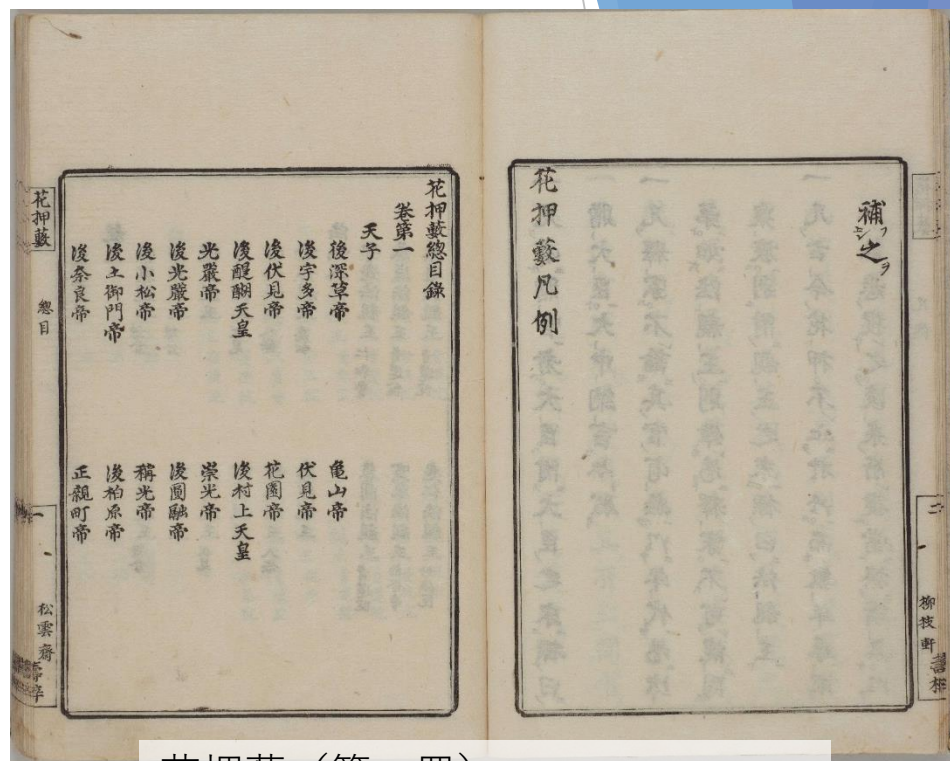 補フ之ヲ
花押藪凡例
二
柳枝軒
花押藪總目錄
卷第一
天子
後深草帝 龜山帝
後宇多帝 伏見帝
後伏見帝 花園帝
後醍醐天皇 後村上天皇
光嚴帝 崇光帝
後光嚴帝 後圓融帝
後小松帝 稱光帝
後土御門帝 後柏原帝
後奈良帝 正親町帝
花押藪
總目
一
松雲齋